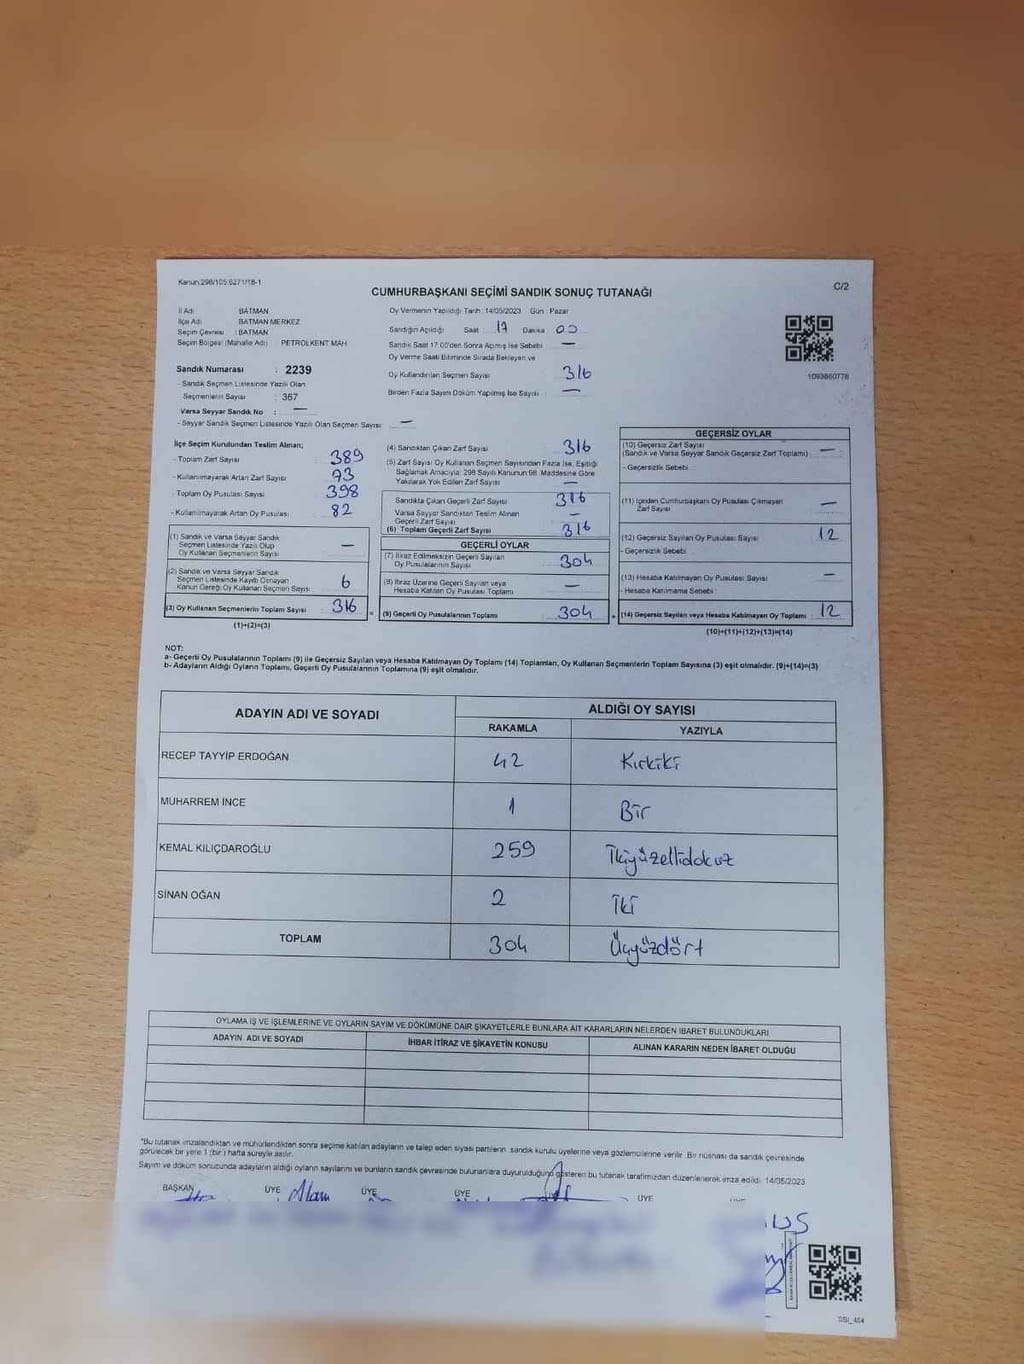 Kanun:298/105:6271/18-1
CUMHURBAŞKANI SEÇİMİ SANDIK SONUÇ TUTANAĞI
C/2
İl Adı BATMAN
İlçe Adı BATMAN MERKEZ
Seçim Çevresi : BATMAN
Seçim Bölgesi (Mahalle Adı) PETROLKENT MAH
Oy Vermenin Yapıldığı Tarih :14/05/2023 Gün : Pazar
Sandığın Açıldığı Saat 17 Dakika 00
Sandık Saat 17.00'den Sonra Açılmış İse Sebebi —
Oy Verme Saati Bitiminde Sırada Bekleyen ve
Oy Kullandırılan Seçmen Sayısı 316
Birden Fazla Sayım Döküm Yapılmış İse Sayısı —
1093860778
Sandık Numarası : 2239
- Sandık Seçmen Listesinde Yazılı Olan
Seçmenlerin Sayısı : 367
Varsa Seyyar Sandık No : —
- Seyyar Sandık Seçmen Listesinde Yazılı Olan Seçmen Sayısı —
İlçe Seçim Kurulundan Teslim Alınan;
- Toplam Zarf Sayısı 389
- Kullanılmayarak Artan Zarf Sayısı 73
- Toplam Oy Pusulası Sayısı 398
- Kullanılmayarak Artan Oy Pusulası 82
(1) Sandık ve Varsa Seyyar Sandık
Seçmen Listesinde Yazılı Olup
Oy Kullanan Seçmenlerin Sayısı —
(2) Sandık ve Varsa Seyyar Sandık
Seçmen Listesinde Kayıtlı Olmayan
Kanun Gereği Oy Kullanan Seçmen Sayısı 6
(3) Oy Kullanan Seçmenlerin Toplam Sayısı 316
(1)+(2)=(3)
(4) Sandıktan Çıkan Zarf Sayısı 316
(5) Zarf Sayısı Oy Kullanan Seçmen Sayısından Fazla İse, Eşitliği
Sağlamak Amacıyla: 298 Sayılı Kanunun 98. Maddesine Göre
Yakılarak Yok Edilen Zarf Sayısı —
Sandıkta Çıkan Geçerli Zarf Sayısı 316
Varsa Seyyar Sandıktan Teslim Alınan
Geçerli Zarf Sayısı —
(6) Toplam Geçerli Zarf Sayısı 316
GEÇERLİ OYLAR
(7) İtiraz Edilmeksizin Geçerli Sayılan
Oy Pusulalarının Sayısı 304
(8) İtiraz Üzerine Geçerli Sayılan veya
Hesaba Katılan Oy Pusulası Toplamı —
= (9) Geçerli Oy Pusulalarının Toplamı 304
GEÇERSİZ OYLAR
(10) Geçersiz Zarf Sayısı
(Sandık ve Varsa Seyyar Sandık Geçersiz Zarf Toplamı) —
- Geçersizlik Sebebi
(11) İçinden Cumhurbaşkanı Oy Pusulası Çıkmayan
Zarf Sayısı —
(12) Geçersiz Sayılan Oy Pusulası Sayısı 12
- Geçersizlik Sebebi
(13) Hesaba Katılmayan Oy Pusulası Sayısı —
- Hesaba Katılmama Sebebi :
+ (14) Geçersiz Sayılan veya Hesaba Katılmayan Oy Toplamı 12
(10)+(11)+(12)+(13)=(14)
NOT:
a- Geçerli Oy Pusulalarının Toplamı (9) ile Geçersiz Sayılan veya Hesaba Katılmayan Oy Toplamı (14) Toplamları, Oy Kullanan Seçmenlerin Toplam Sayısına (3) eşit olmalıdır. (9)+(14)=(3)
b- Adayların Aldığı Oyların Toplamı, Geçerli Oy Pusulalarının Toplamına (9) eşit olmalıdır.
ADAYIN ADI VE SOYADI ALDIĞI OY SAYISI
RAKAMLA YAZIYLA
RECEP TAYYİP ERDOĞAN 42 Kırkiki
MUHARREM İNCE 1 Bir
KEMAL KILIÇDAROĞLU 259 İkiyüzellidokuz
SİNAN OĞAN 2 İki
TOPLAM 304 Üçyüzdört
OYLAMA İŞ VE İŞLEMLERİNE VE OYLARIN SAYIM VE DÖKÜMÜNE DAİR ŞİKAYETLERLE BUNLARA AİT KARARLARIN NELERDEN İBARET BULUNDUKLARI
ADAYIN ADI VE SOYADI İHBAR İTİRAZ VE ŞİKAYETİN KONUSU ALINAN KARARIN NEDEN İBARET OLDUĞU
*Bu tutanak imzalandıktan ve mühürlendikten sonra seçime katılan adayların ve talep eden siyasi partilerin sandık kurulu üyelerine veya gözlemcilerine verilir. Bir nüshası da sandık çevresinde
görülecek bir yere 1 (bir) hafta süreyle asılır.
Sayım ve döküm sonuzunda adayların aldığı oyların sayılarını ve bunların sandık çevresinde bulunanlara duyurulduğunu gösteren bu tutanak tarafımızdan düzenlenerek imza edildi. 14/05/2023
BAŞKAN ÜYE ÜYE ÜYE ÜYE
SSI_454